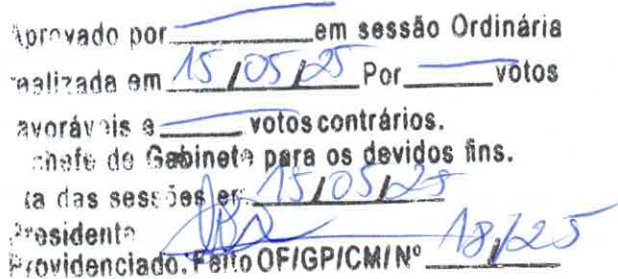 Aprovado por ______ em sessão Ordinária
realizada em 15/05/25 Por ______ votos
favoráveis e ______ votos contrários.
chefe de Gabinete para os devidos fins.
ta das sessões em 15/05/25
Presidente
Providenciado. Feito OF/GP/CM/Nº 18/25